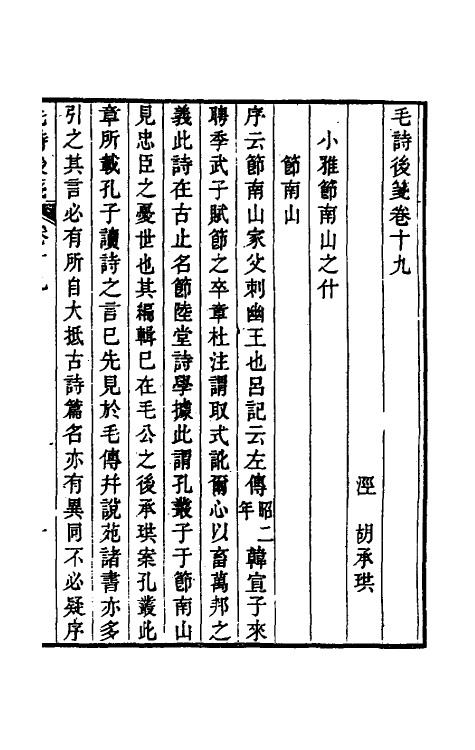 毛詩後箋卷十九
涇　胡承珙
小雅節南山之什
節南山
序云節南山家父刺幽王也呂記云左傳昭二年韓宣子來
聘季武子賦節之卒章杜注謂取式訛爾心以畜萬邦之
義此詩在古止名節陸堂詩學據此謂孔叢子于節南山
見忠臣之憂世也其編輯已在毛公之後承珙案孔叢此
章所載孔子讀詩之言已先見於毛傳幷說苑諸書亦多
引之其言必有所自大抵古詩篇名亦有異同不必疑序
毛詩後箋　卷十九　一